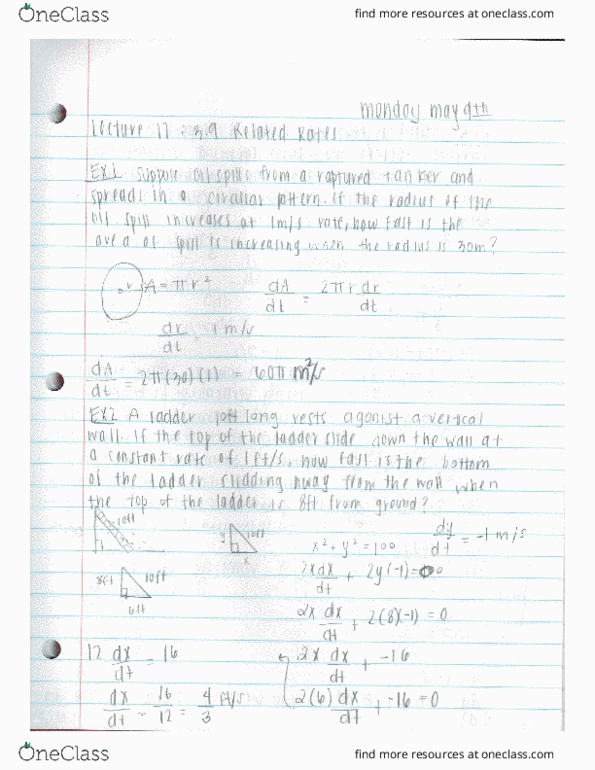 OneClass
find more resources at oneclass.com
monday may 9th
Lecture 17 : 3.9 Related Rates
EX1 Suppose oil spills from a raptured tanker and
spreads in a circular pattern. If the radius of the
oil spill increases at 1m/s rate, how fast is the
area of spill is increasing when the radius is 30m?
r A = πr² dA/dt = 2πr dr/dt
dr/dt = 1 m/s
dA/dt = 2π(30)(1) = 60π m²/s
EX2 A ladder 10ft long rests agonist a vertical
wall. If the top of the ladder slide down the wall at
a constant rate of 1ft/s, how fast is the bottom
of the ladder slidding away from the wall when
the top of the ladder is 8ft from ground?
10ft
y 10ft x
x² + y² = 100 dy/dt = -1 m/s
2x dx/dt + 2y(-1) = 0
8ft 10ft 6ft
2x dx/dt + 2(8)(-1) = 0
12 dx/dt = 16
2x dx/dt + -16
dx/dt = 16/12 = 4/3 ft/s
2(6) dx/dt + -16 = 0
OneClass
find more resources at oneclass.com